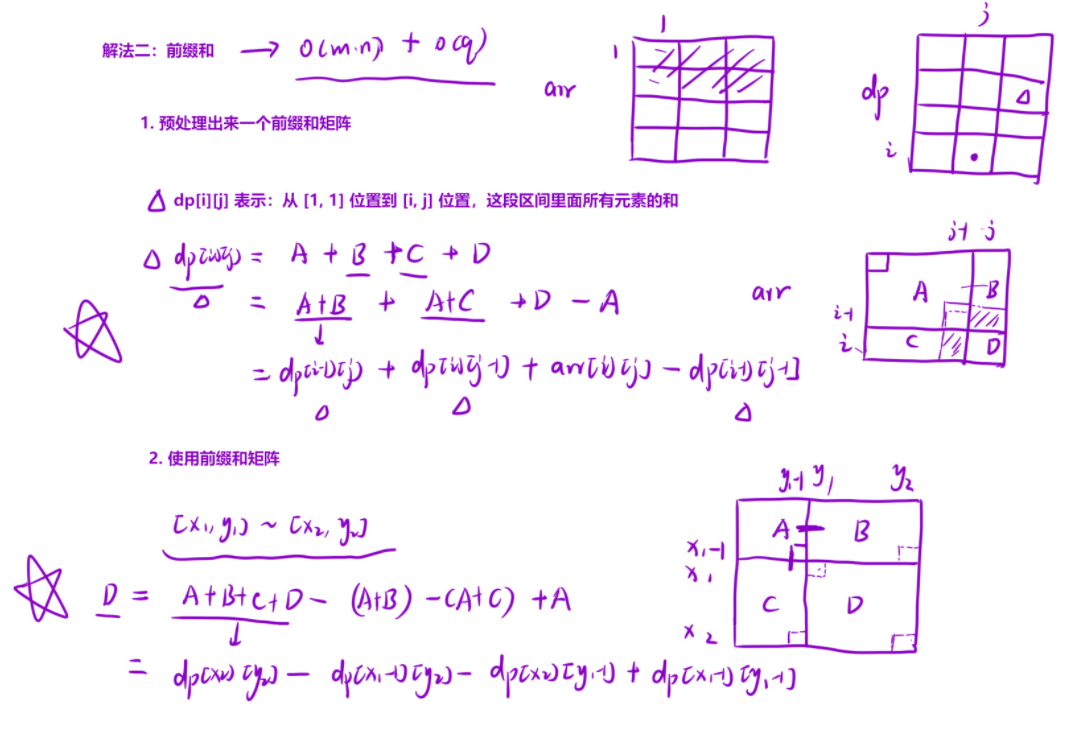 解法二：前缀和 → O(m·n) + O(q)
1
1
arr
j
dp
i
1. 预处理出来一个前缀和矩阵
dp[i][j] 表示：从 [1, 1] 位置到 [i, j] 位置，这段区间里面所有元素的和
dp[i][j] = A + B + C + D
= A+B + A+C + D - A
= dp[i-1][j] + dp[i][j-1] + arr[i][j] - dp[i-1][j-1]
j-1 j
arr
A B
i-1
i
C D
2. 使用前缀和矩阵
[x1, y1] ~ [x2, y2]
D = A+B+C+D - (A+B) - (A+C) + A
= dp[x2][y2] - dp[x1-1][y2] - dp[x2][y1-1] + dp[x1-1][y1-1]
y1-1 y1 y2
A B
x1-1
x1
C D
x2